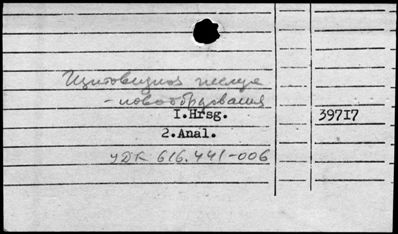 Щитовидная железа
- новообразования
I.Hrsg. 397I7
2.Anal.
УДК 616.441-006